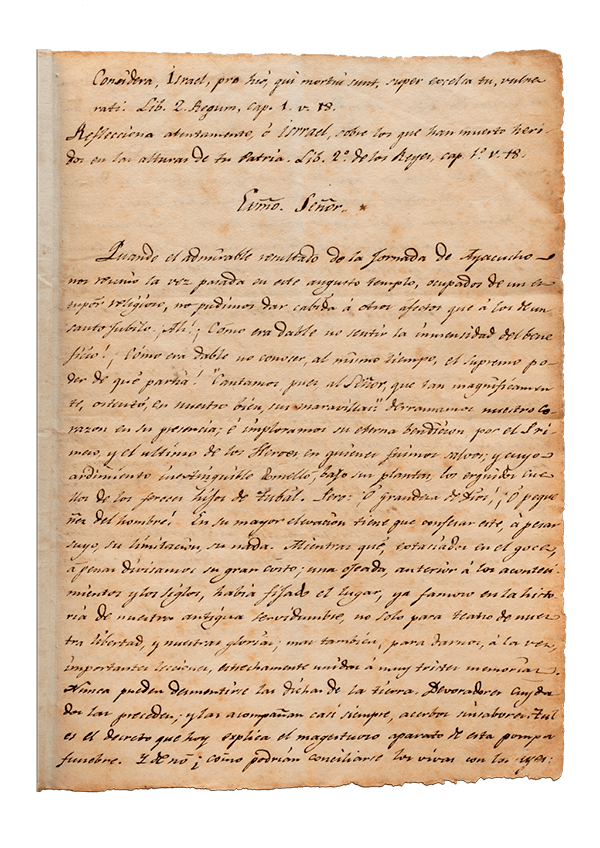 Considera, Israel, pro his, qui mortui sunt, super excelsa tu, vulne
rati. Lib. 2. Regum, cap. 1. v. 18.
Reflecciona atentamente, ó Israel, sobre los que han muerto heri
dos en las alturas de tu Patria. Lib. 2º de los Reyes, cap. 1º v. 18.
Exmõ. Señor.
Quando el admirable resultado de la Jornada de Ayacucho
nos reunio la vez pasada en este augusto templo, ocupados de un es
tupór religioso, no pudimos dar cabida á otros afectos que á los de un
santo jubilo. Ah! ¡Como era dable no sentir la inmensidad del bene
ficio! ¡Cómo era dable no conocer, al mismo tiempo, el supremo po
der de qué partia! "Cantamos pues al Señor, que tan magnificamen
te, ostentó, en nuestro bien, sus maravillas:" derramamos nuestro co
razon en su presencia; é imploramos su eterna bendicion por el Pri
mero, y el ultimo de los Heroes en quienes fuimos salvos; y cuyo
ardimiento inextinguible domelló, baxo sus plantas, los erguidos cue
llos de los feroces hijos de Tubál. Pero: ¡O grandeza de Dios! ¡O peque
ñez del hombre! En su mayor elevacion tiene que confesar este, á pesar
suyo, su limitacion, su nada. Mientras qué, extasiados en el goce,
á penas divisamos su gran costo; una ojeada, anteriór á los aconteci
mientos y los siglos, habia fijado el lugar, ya famoso en la histo
ria de nuestra antigua servidumbre, no solo para teatro de nues
tra libertad, y nuestras glorias; mas tambien, para darnos, á la vez,
importantes lecciones, estrechamente unidas á muy tristes memorias.
Nunca pueden desmentirse las dichas de la tierra. Devoradores cuyda
dos las preceden; y las acompañan casi siempre, acerbos sinsabores. Tal
es el decreto que hoy explica el magestuoso aparato de esta pompa
funebre. Y de nó ¡cómo podrían conciliarse los vivas con los ayes: